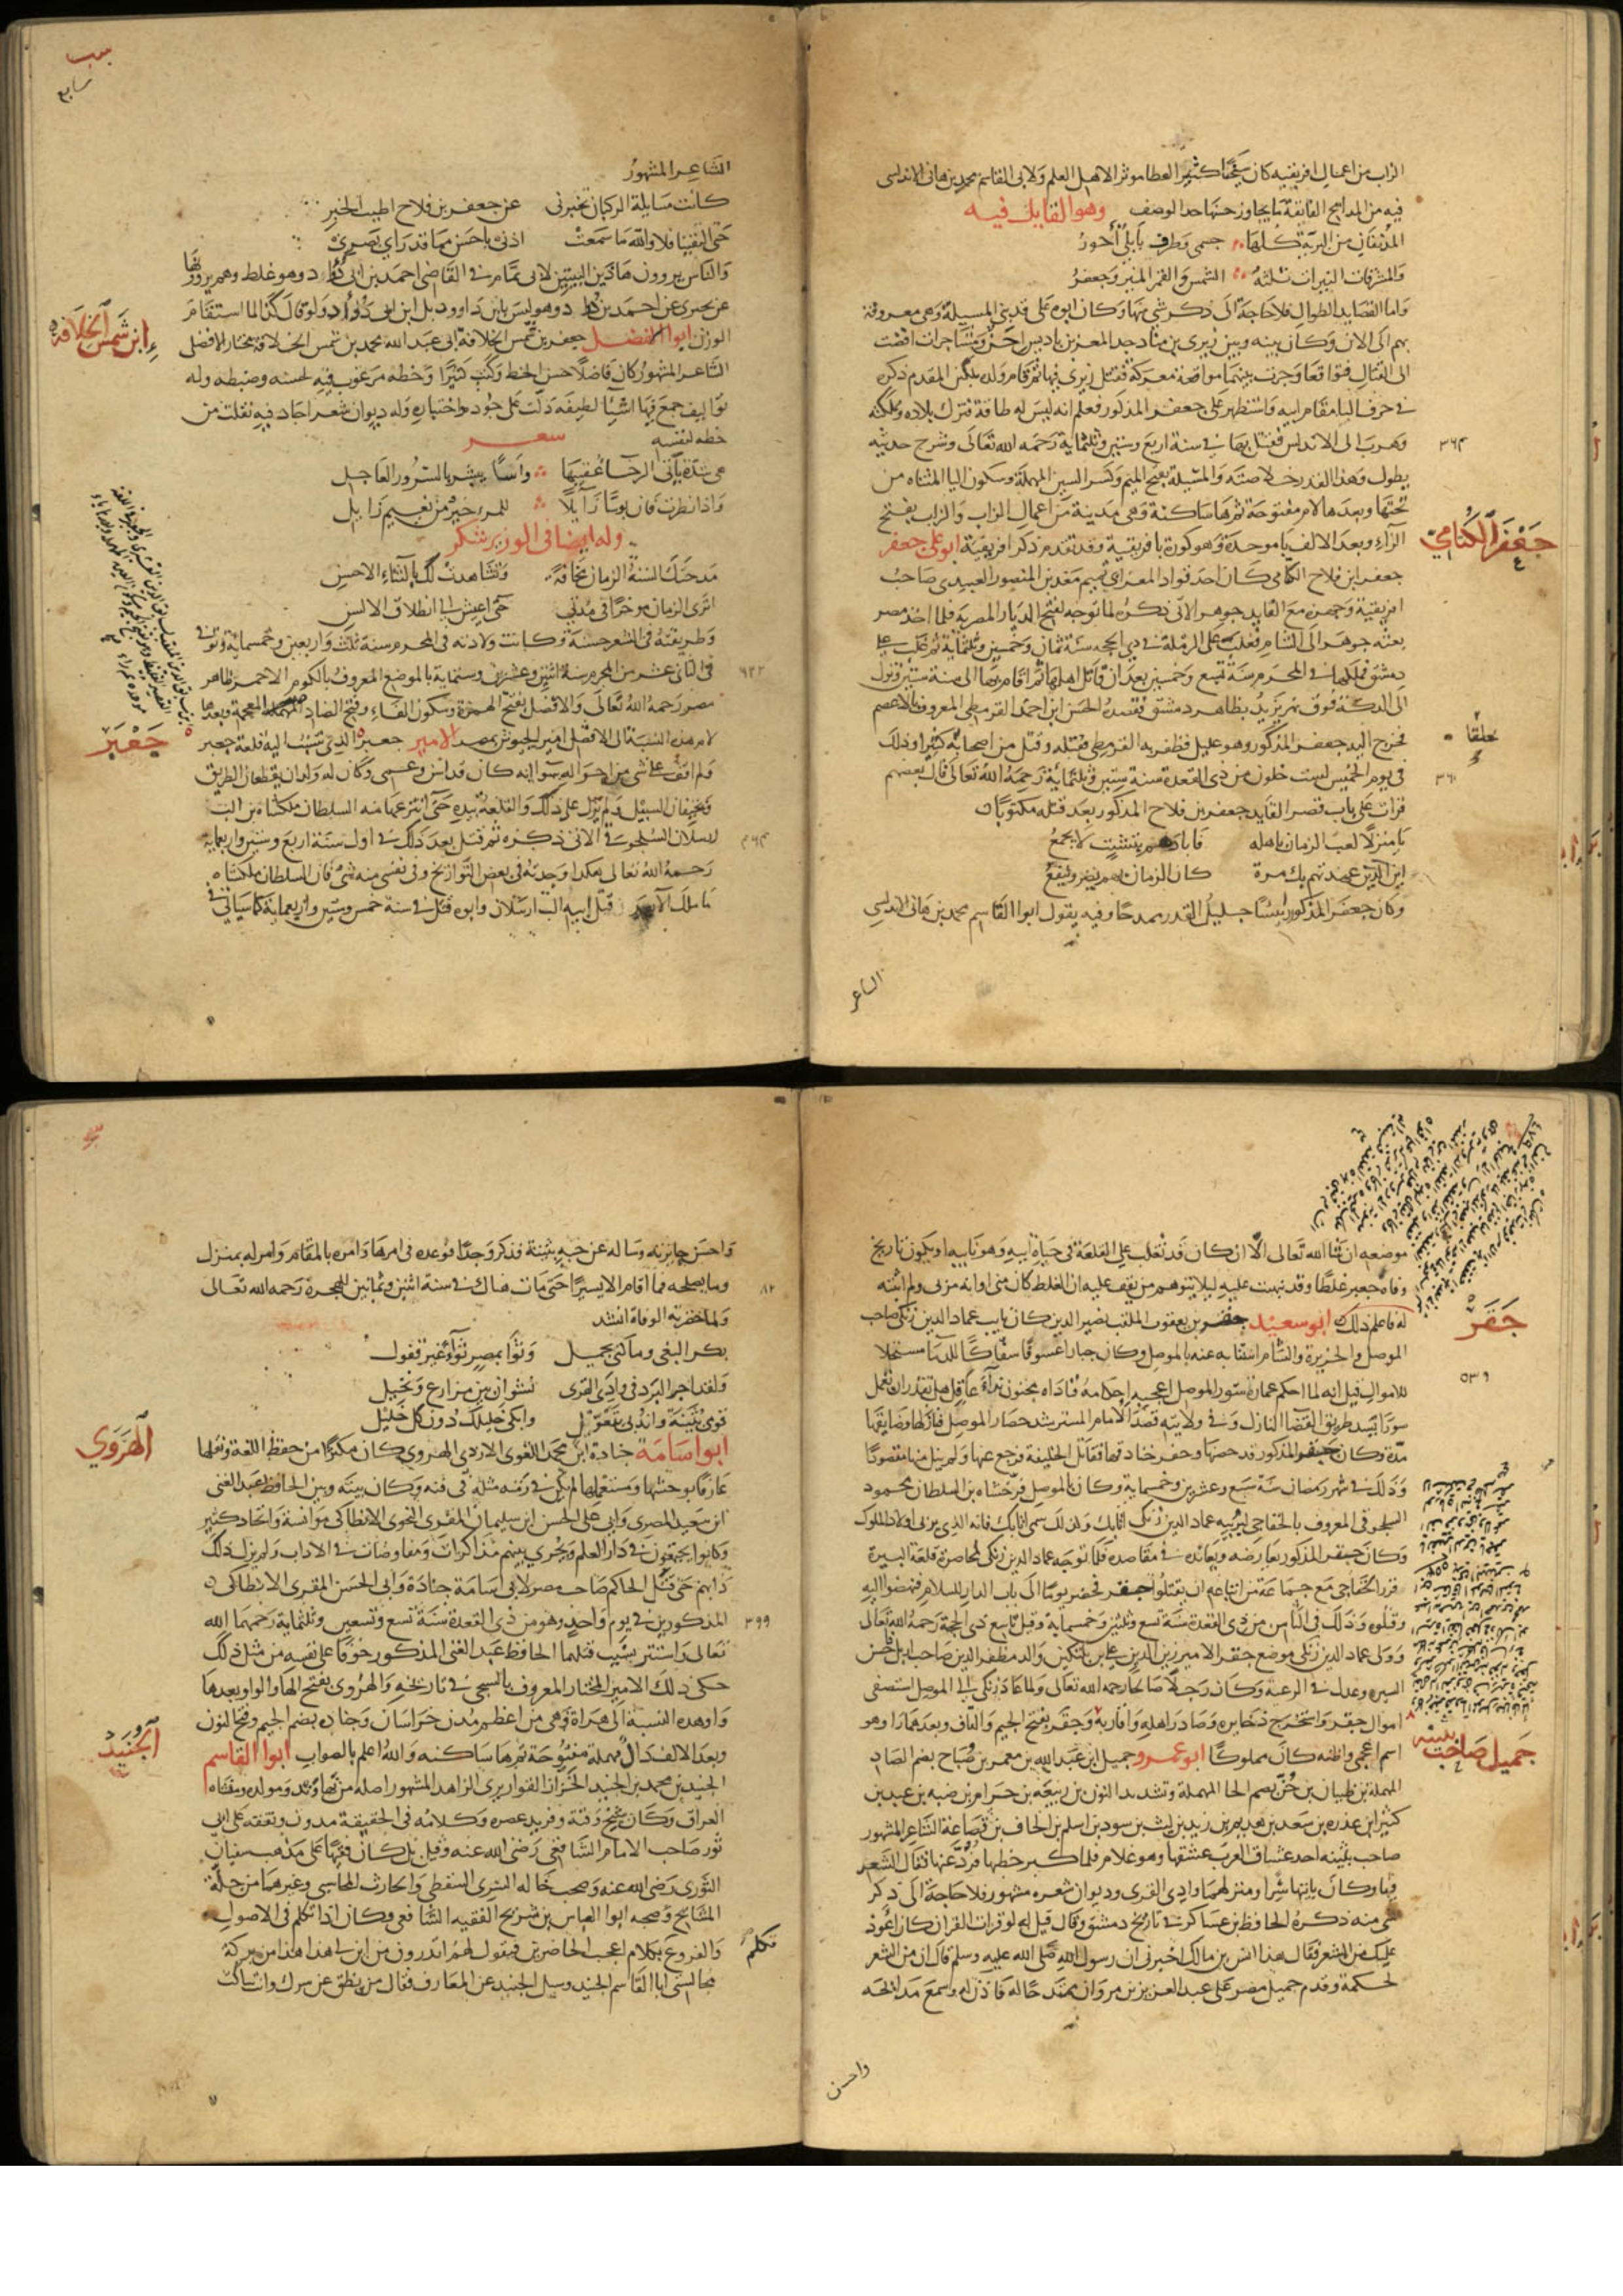 الزاب من اعمال افريقيه كان سمحا كثير العطا موثرا لاهل العلم ولابى القاسم محمد بن هانى الاندلسى
فيه من المدايح الفايقة ما يجاوز حسنها حد الوصف وهو القايل فيه
المدنفان من البرية كلها جسمى وطرف بابلى احور
والمشرقات النيرات ثلثة الشمس والقمر المنير وجعفر
واما القصايد الطوال فلا حاجة الى ذكر شى منها وكان ابوه على قد بنى المسيلة وهى معروفة
بهم الى الان وكان بينه وبين زيرى بن مناد جد المعز بن باديس احن ومشاجرات افضت
الى القتال فتواقعا وجرت بينهما مواقعة معركة فقتل زيرى فيها ثم قام ولده بلكين المقدم ذكره
فى حرف البا مقام ابيه واستظهر على جعفر المذكور فعلم انه ليس له طاقة فترك بلاده ومملكته
وهرب الى الاندلس فقتل بها فى سنة اربع وستين وثلثماية رحمه الله تعالى وشرح حديثه
٣٦٤
يطول وهذا القدر خلاصته والمسيلة بفتح الميم وكسر السين المهملة وسكون اليا المثناه من
تحتها وبعدها لام مفتوحة ثم ها ساكنة وهى مدينة من اعمال الزاب والزاب بفتح
الزاء وبعد الالف با موحدة وهو كورة بافريقية وقد تقدم ذكر افريقية ابو على جعفر
جعفر الكتامى
جعفر ابن فلاح الكتامى كان احد قواد المعز ابى تميم معد بن المنصور العبيدى صاحب
افريقية وجهزه مع القايد جوهر الاتى ذكره لما توجه لفتح الديار المصرية فلما اخذ مصر
بعثه جوهر الى الشام فغلب على الرملة فى ذى الحجه سنة ثمان وخمسين وثلثماية ثم غلب على
دمشق فملكها فى المحرم سنة تسع وخمسين بعد ان قاتل اهلها ثم اقام بها الى سنة ستين ونزل
الى الدكة فوق نهر يزيد بظاهر دمشق فقصده الحسن ابن احمد القرمطى المعروف بالاعصم
فخرج اليه جعفر المذكور وهو عليل فظفر به القرمطى فقتله وقتل من اصحابه كثيرا وذلك
فى يوم الخميس لست خلون من ذى القعدة سنة ستين وثلثماية رحمه الله تعالى قال بعضهم
٣٦٠
قرات على باب قصر القايد جعفر بن فلاح المذكور بعد قتله مكتوبا
يا منزلا لعب الزمان باهله فابادهم بتشتت لا يجمع
اين الذين عهدتهم بك مرة كان الزمان بهم يضر وينفع
وكان جعفر المذكور رئيسا جليل القدر ممدحا وفيه يقول ابوا القاسم محمد بن هانى الاندلسى
الشاعر
الشاعر المشهور
كانت مسايلة الركبان تخبرنى عن جعفر بن فلاح اطيب الخبر
حتى التقينا فلا والله ما سمعت اذنى باحسن مما قد راى بصرى
والناس يروون هاذين البيتين لابى تمام فى القاضى احمد بن ابى دواد وهو غلط وهم يروونها
عن احمد بن دواد وهو ليس بابن داوود بل ابن ابى دواد ولو قال كذا لما استقام
الوزن ابوا الفضل جعفر بن شمس الخلافة ابى عبد الله محمد بن شمس الخلافة مختار الافضلى
ابن شمس الخلافة
الشاعر المشهور كان فاضلا حسن الخط وكتب كثيرا وخطه مرغوب فيه لحسنه وضبطه وله
تواليف جمع فيها اشياء لطيفه دلت على جوده واختياره وله ديوان شعر اجاد فيه نقلت من
خطه لنفسه شعر
هى شدة ياتى الرخا عقيبها واسا يبشر بالسرور العاجل
واذا نظرت فان بوسا زايلا للمرء خير من نعيم زايل
وله ايضا فى الوزير بن شكر
مدحتك السنة الزمان مخافة وتشاهدت لك بالثناء الاحسن
اترى الزمان موخرا فى مدتى حتى اعيش الى انطلاق الالسن
وطريقته فى الشعر حسنة وكانت ولادته فى المحرم سنة ثلث واربعين وخمسمائة وتوفى
فى الثانى عشر من المحرم سنة اثنين وعشرين وستماية بالموضع المعروف بالكوم الاحمر ظاهر
٦٢٢
مصر رحمه الله تعالى والافضلى بفتح الهمزة وسكون الفاء وفتح الضاد المعجمة وبعدها
لام هذه النسبة الى الافضل امير الجيوش بمصر الامير جعبر الذى تنسب اليه قلعة جعبر
جعبر
ولم اقف على شى من احواله سوا انه كان قد اسن وعمى وكان له ولدان يقطعان الطريق
ويخيفان السبيل ولم يزل على ذلك والقلعة بيده حتى انتزعها منه السلطان ملكشاه بن الب
ارسلان السلجوقى الاتى ذكره ثم قتل بعد ذلك فى اول سنة اربع وستين واربعماية
٤٦٤
رحمه الله تعالى هكذا وجدته فى بعض التواريخ وفى نفسى منه شى فان السلطان ملكشاه
ما ملك الا بعد قتل ابيه الب ارسلان وابوه قتل فى سنة خمس وستين واربعماية كما سياتى فى
موضعه ان شا الله تعالى الا ان كان قد تغلب على القلعة فى حياة ابيه وهو نايبه او يكون تاريخ
وفاة جعبر غلطا وقد نبهت عليه ليلا يتوهم من يقف عليه ان الغلط كان منى او انه مر بى ولم انتبه
له فاعلم ذلك ابو سعيد جقر بن يعقوب الملقب نصير الدين كان نايب عماد الدين زنكى صاحب
جقر
الموصل والجزيرة والشام استنابه عنه بالموصل وكان جبارا عسوفا سفاكا للدما مستحلا
للاموال قيل انه لما احكم عمارة سور الموصل اعجبه احكامه فناداه مجنون نداء عاقل هل تقدر ان تعمل
٥٣٩
سورا يسد طريق القضا النازل وفى ولايته قصد الامام المسترشد حصار الموصل فنازلها وضايقها
مدة وكان جقر المذكور قد حصنها وحفر خنادقها فقاتل الخليفة فرجع عنها ولم ينل منها مقصودا
وذلك فى شهر رمضان سنة سبع وعشرين وخمسماية وكان بالموصل فرخشاه بن السلطان محمود
السلجوقى المعروف بالخفاجى ليربيه عماد الدين زنكى اتابك ولذلك سمى اتابك فانه الذى يربى اولاد الملوك
وكان جقر المذكور يعارضه ويعانده فى مقاصده فلما توجه عماد الدين زنكى لمحاصرة قلعة البيرة
قرر الخفاجى مع جماعة من اتباعه ان يقتلوا جقر فحضر يوما الى باب الدار للسلام فنهضوا اليه
وقتلوه وذلك فى الثامن من ذى القعدة سنة تسع وثلثين وخمسماية وقيل تاسع ذى الحجة رحمه الله تعالى
وولى عماد الدين زنكى موضع جقر الامير زين الدين على بن بلتكين والد مظفر الدين صاحب اربل فاحسن
السيره وعدل فى الرعية وكان رجلا صالحا رحمه الله تعالى ولما عاد زنكى الى الموصل استصفى
اموال جقر واستخرج ذخايره وصادر اهله واقاربه وجقر بفتح الجيم والقاف وبعدهما را وهو
اسم اعجمى واظنه كان مملوكا ابو عمرو جميل ابن عبد الله بن معمر بن صباح بضم الصاد
جميل صاحب بثينه
المهملة بن ظبيان بن حن بضم الحا المهملة وتشديد النون بن ربيعه بن حرام بن ضبه بن عبد بن
كثير ابن عذره بن سعد بن هديم بن زيد بن ليث بن سود بن اسلم بن الحاف بن قضاعة الشاعر المشهور
صاحب بثينه احد عشاق العرب عشقها وهو غلام فلما كبر خطبها فرد عنها فقال الشعر
فيها وكان ياتيها سرا ومنزلهما وادى القرى وديوان شعره مشهور فلا حاجة الى ذكر
شى منه ذكره الحافظ بن عساكر فى تاريخ دمشق وقال قيل له لو قرات القران كان اعود
عليك من الشعر فقال هذا انس بن مالك اخبرنى ان رسول الله صلى الله عليه وسلم قال ان من الشعر
لحكمة وقدم جميل مصر على عبد العزيز بن مروان ممتدحا له فاذن له وسمع مدايحه
واحسن
واحسن جايزته وساله عن حبه بثينة فذكر وجدا فوعده فى امرها وامره بالمقام وامر له بمنزل
وما يصلحه فما اقام الا يسيرا حتى مات هناك فى سنة اثنين وثمانين للهجرة رحمه الله تعالى
٨٢
ولما حضرته الوفاة انشد
بكر النعى وما كنى بجميل وثوا بمصر ثواء غير قفول
ولقد اجر البرد فى وادى القرى نشوان بين مزارع ونخيل
قومى بثينة واندبى بتعويل وابكى خليلك دون كل خليل
ابوا سامة جنادة ابن محمد اللغوى الازدى الهروى كان مكثرا من حفظ اللغة ونقلها
الهروى
عارفا بوحشيها ومستعملها لم يكن فى زمنه مثله فى فنه وكان بينه وبين الحافظ عبد الغنى
ابن سعيد المصرى وابى على الحسن ابن سليمان المقرى النحوى الانطاكى موانسة واتحاد كثير
وكانوا يجتمعون فى دار العلم ويجرى بينهم مذاكرات ومفاوضات فى الاداب ولم يزل ذلك
دابهم حتى قتل الحاكم صاحب مصر لابى اسامة جنادة وابى الحسن المقرى الانطاكى
المذكورين فى يوم واحد وهو من ذى القعدة سنة تسع وتسعين وثلثماية رحمهما الله
٣٩٩
تعالى واستتر بسبب قتلهما الحافظ عبد الغنى المذكور خوفا على نفسه من مثل ذلك
حكى ذلك الامير المختار المعروف بالمسبحى فى تاريخه والهروى بفتح الها والوا وبعدها
واو هذه النسبة الى هراة وهى من اعظم مدن خراسان وجناده بضم الجيم وفتح النون
وبعد الالف دال مهملة مفتوحة ثم ها ساكنه والله اعلم بالصواب ابوا القاسم
الجنيد
الجنيد بن محمد بن الجنيد الخزاز القواريرى الزاهد المشهور اصله من نهاوند ومولده ومنشاه
العراق وكان شيخ وقته وفريد عصره وكلامه فى الحقيقة مدون وتفقه على ابى
ثور صاحب الامام الشافعى رضى الله عنه وقيل بل كان فقيها على مذهب سفيان
الثورى رضى الله عنه وصحب خاله السرى السقطى والحارث المحاسبى وغيرهما من جلة
المشايخ وصحبه ابوا العباس بن شريح الفقيه الشافعى وكان اذا تكلم فى الاصول
والفروع بكلام اعجب الحاضرين فيقول لهم اتدرون من اين لى هذا هذا من بركة
تكلم
مجالستى ابا القاسم الجنيد وسيل الجنيد عن العارف فقال من ينطق عن سرك وانت ساكت